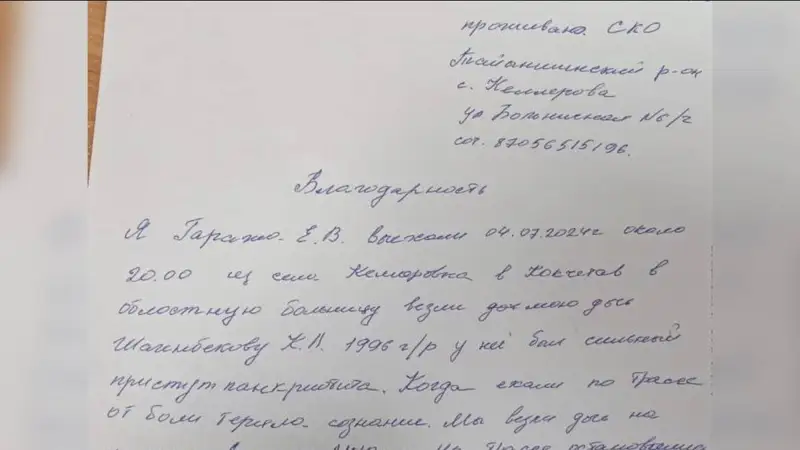 проживаю. СКО
Тайыншинский р-он
с. Келлерова
ул Больничная №6/2
сот. 87056515196.
Благодарность
Я Е.В. выехали 04.07.2024г около
20.00 из села Келлеровка в Кокчетав в
областную больницу везли дочь мою дочь
Шагинбекову К.В. 1996 г/р у неё был сильный
приступ панкриотита. Когда ехали по трассе
от боли теряла сознание. Мы везли дочь на
остановились